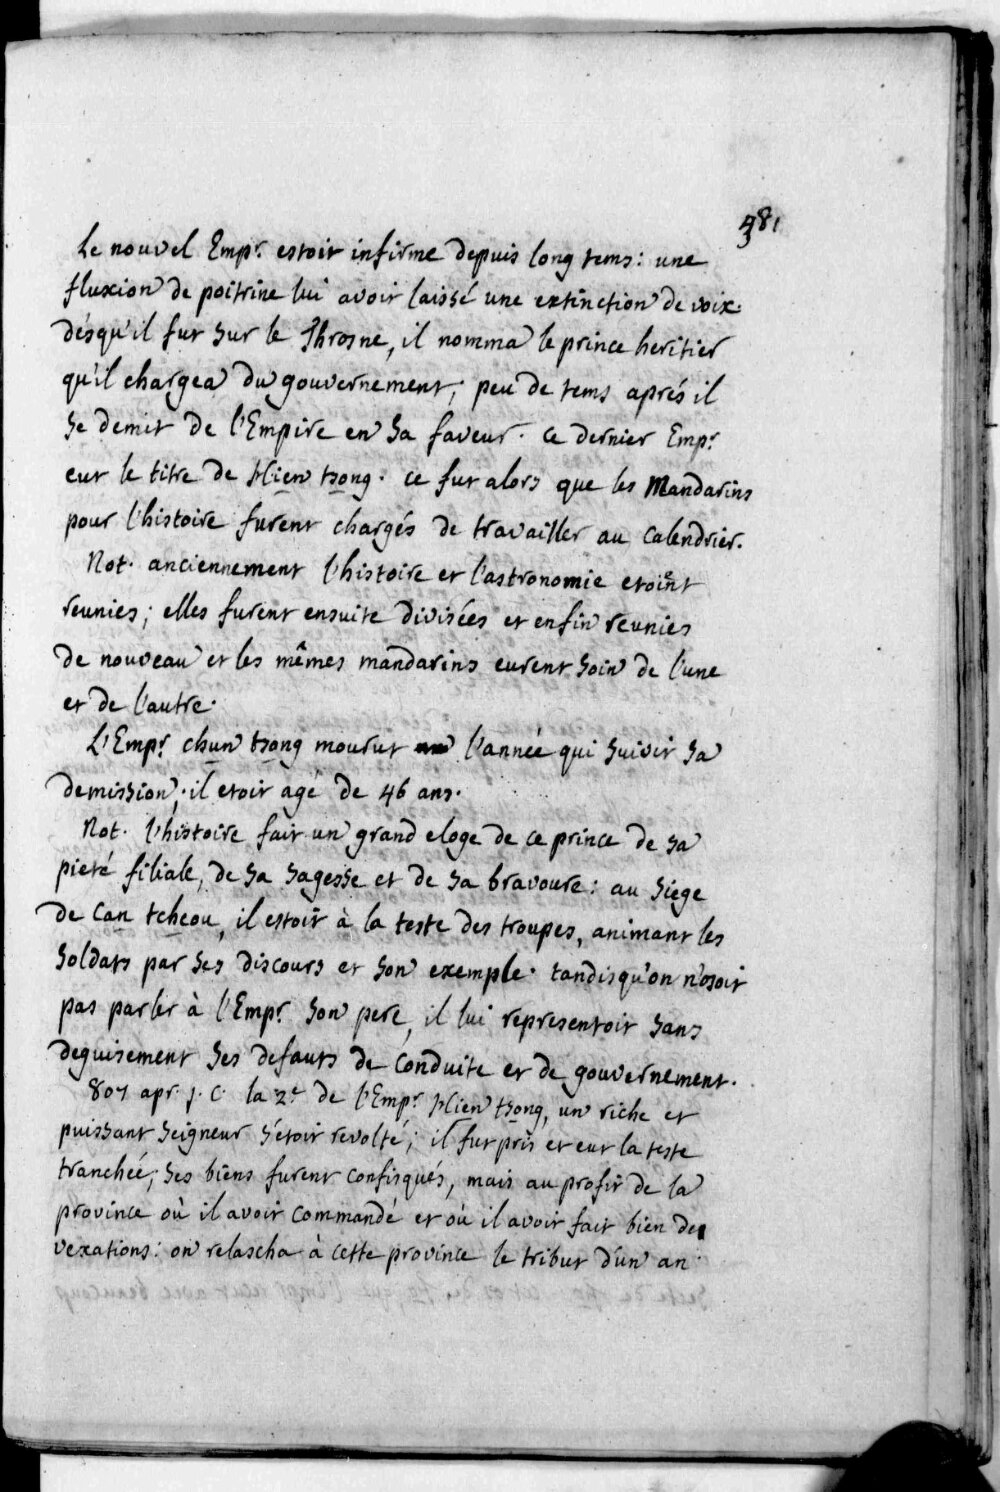 481
Le nouvel Empr. estoit infirme depuis long tems: une
fluxion de poitrine lui avoit laissé une extinction de voix.
désqu'il fut sur le Throsne, il nomma le prince heritier
qu'il chargea du gouvernement; peu de tems aprés il
se demit de l'Empire en sa faveur. ce dernier Empr.
eut le titre de Hien tsong. ce fut alors que les Mandarins
pour l'histoire furent chargés de travailler au calendrier.
Not. anciennement l'histoire et l'astronomie etoient
reunies; elles furent ensuite divisées et enfin reunies
de nouveau et les mêmes mandarins eurent soin de l'une
et de l'autre.
L'Empr. chun tsong mourut l'année qui suivit sa
demission; il etoit agé de 46 ans.
Not. l'histoire fait un grand eloge de ce prince de sa
pieté filiale, de sa sagesse et de sa bravoure: au siege
de Can tcheou, il estoit à la teste des troupes, animant les
soldats par ses discours et son exemple. tandisqu'on n'osoit
pas parler à l'Empr. son pere, il lui representoit sans
deguisement ses defauts de conduite et de gouvernement.
807 apr. j. C. la 2e de l'Empr. Hien tsong, un riche et
puissant seigneur s'etoit revolté; il fut pris et eut la teste
tranchée; ses biens furent confisqués, mais au profit de la
province où il avoit commandé et où il avoit fait bien des
vexations: on relascha à cette province le tribut d'un an.